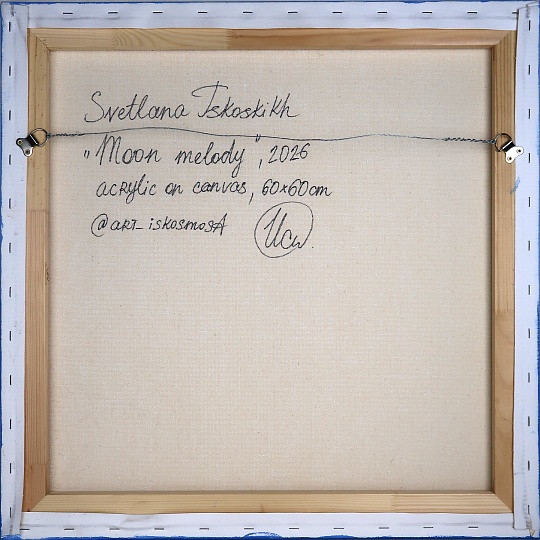 Svetlana Iskoskikh
„Moon melody", 2026
acrylic on canvas, 60x60cm
@ART_iskosmosA
Иск.